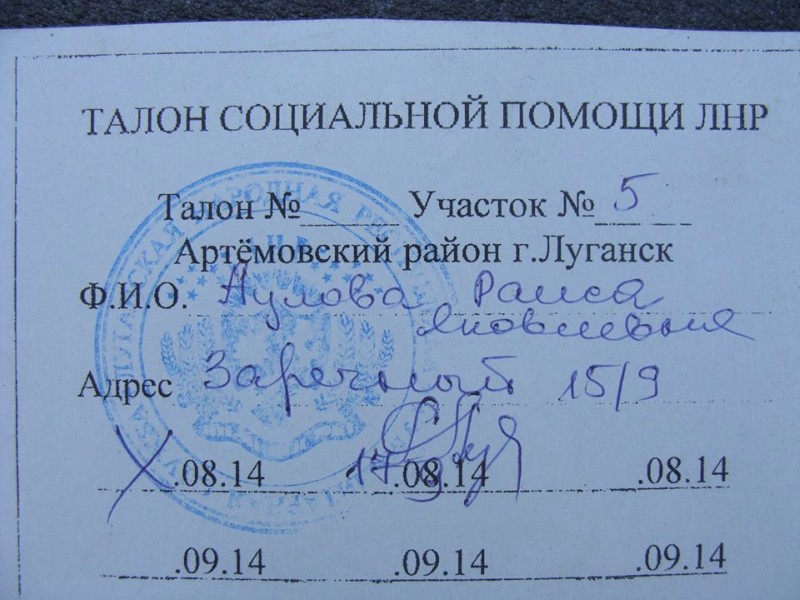 ТАЛОН СОЦИАЛЬНОЙ ПОМОЩИ ЛНР
Талон №_____ Участок № 5
Артёмовский район г.Луганск
Ф.И.О. Аулова Раиса
Яковлевна
Адрес Заречный 15/9
.08.14 17.08.14 .08.14
.09.14 .09.14 .09.14